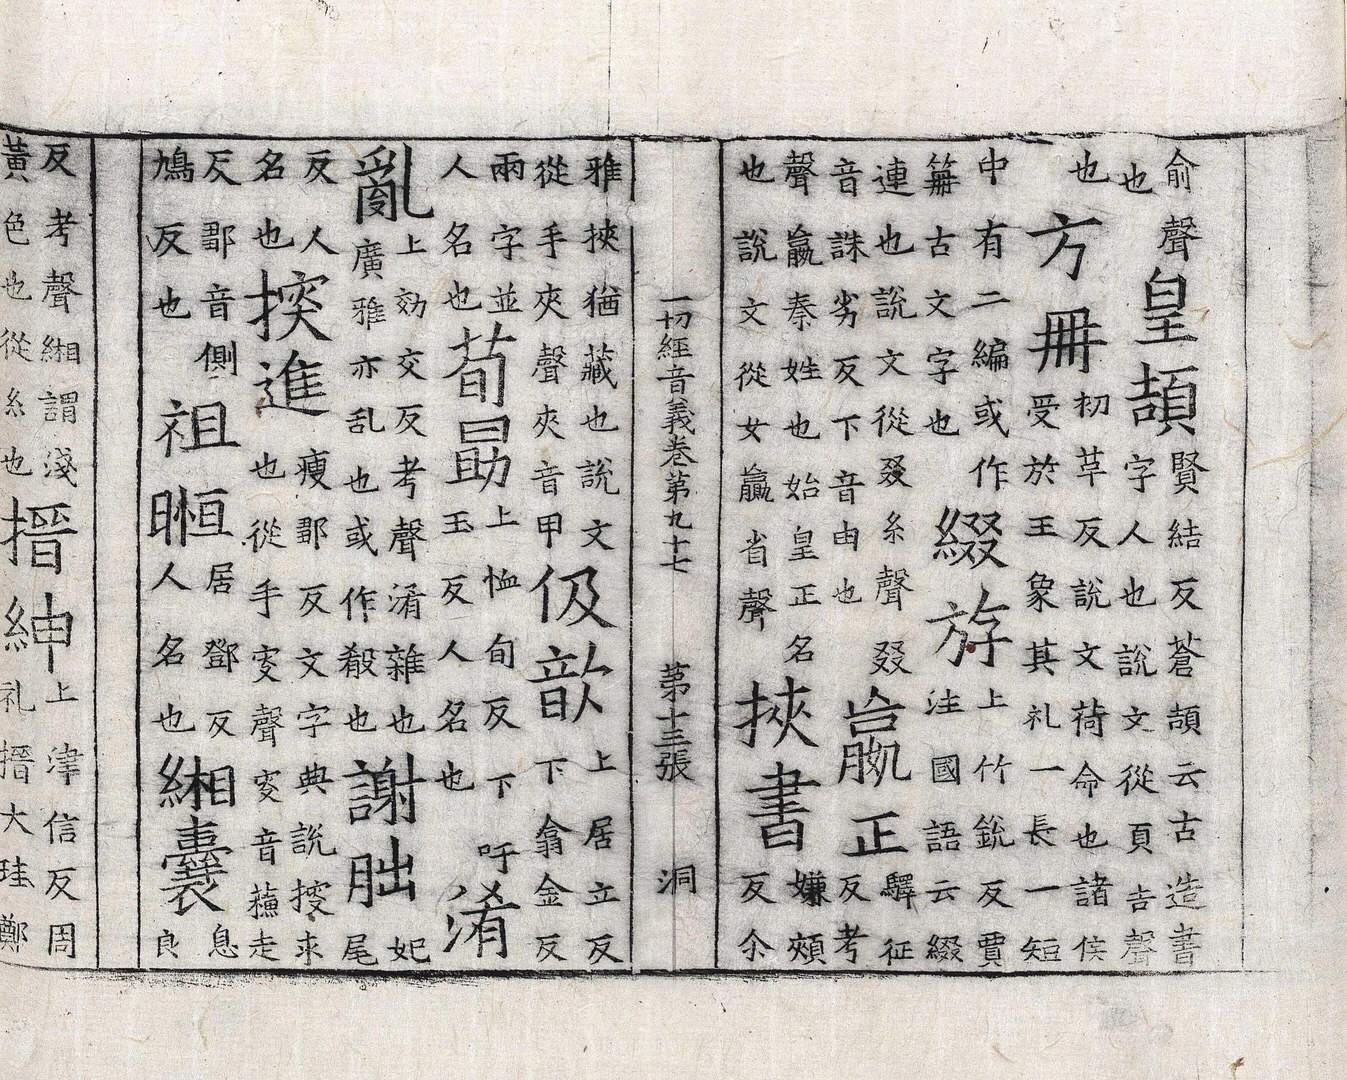 俞聲
也
皇頡
賢結反蒼頡云古造書
字人也說文從頁吉聲
也
方冊
初草反說文荷命也諸侯
受於王象其礼一長一短
中有二編或作
笧古文字也
綴斿
上竹銳反賈
注國語云綴
連也說文從叕糸聲叕
音誅劣反下音由也
嬴正
驛征
反考
聲嬴秦姓也始皇正名
也說文從女羸省聲
挾書
嫌頰
反尒
一切經音義卷第九十七 第十三張 洞
雅挾猶藏也說文
從手夾聲夾音甲
伋歆
上居立反
下翕金反
兩字並
人名也
荀勗
上恤旬反下吁
玉反人名也
淆
亂
上効交反考聲淆雜也
廣雅亦乱也或作殽也
謝朏
妃
尾
反人
名也
搜進
瘦鄒反文字典說搜求
也從手叜聲叜音蘓走
反鄒音側
鳩反也
祖暅
居鄧反
人名也
緗囊
息
良
反考聲緗謂淺
黃色也從糸也
搢紳
上津信反周
礼搢大珪鄭